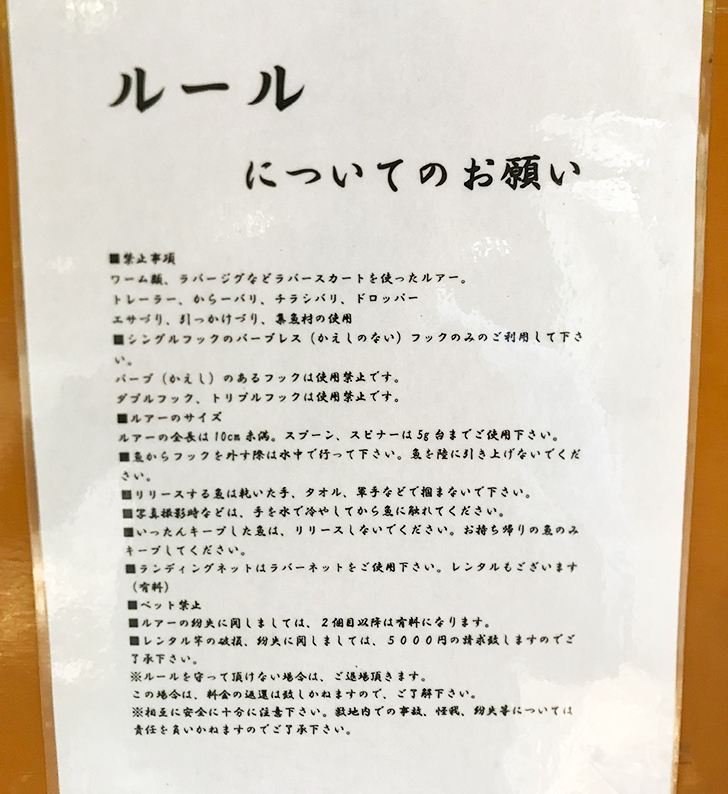 ルール
についてのお願い
■禁止事項
ワーム類、ラバージグなどラバースカートを使ったルアー。
トレーラー、からーバリ、チラシバリ、ドロッパー
エサづり、引っかけづり、集魚村の使用
■シングルフックのバーブレス（かえしのない）フックのみのご利用して下さ
い。
バーブ（かえし）のあるフックは使用禁止です。
ダブルフック、トリプルフックは使用禁止です。
■ルアーのサイズ
ルアーの全長は10cm未満。スプーン、スピナーは5g台までご使用下さい。
■魚からフックを外す際は水中で行って下さい。魚を陸に引き上げないでくだ
さい。
■リリースする魚は乾いた手、タオル、軍手などで掴まないで下さい。
■写真撮影時などは、手を水で冷やしてから魚に触れてください。
■いったんキープした魚は、リリースしないでください。お持ち帰りの魚のみ
キープしてください。
■ランディングネットはラバーネットをご使用下さい。レンタルもございます
（有料）
■ペット禁止
■ルアーの紛失に関しましては、２個目以降は有料になります。
■レンタル竿の破損、紛失に関しましては、５０００円の請求致しますのでご
了承下さい。
※ルールを守って頂けない場合は、ご退場頂きます。
この場合は、料金の返還は致しかねますので、ご了解下さい。
※相互に安全に十分に注意下さい。敷地内での事故、怪我、紛失等については
責任を負いかねますのでご了承下さい。